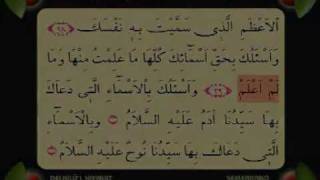 اَلْاَعْظَمِ الَّذِي سَمَّيْتَ بِهِ نَفْسَكَ
وَاَسْئَلُكَ بِحَقِّ اَسْمَآئِكَ كُلِّهَا مَا عَلِمْتُ مِنْهَا وَمَا
لَمْ اَعْلَمْ ﴿٢٢﴾ وَاَسْئَلُكَ بِالْاَسْمَآءِ الَّتِي دَعَاكَ
بِهَا سَيِّدُنَا اٰدَمُ عَلَيْهِ السَّلَامُ وَبِالْاَسْمَآءِ
الَّتِي دَعَاكَ بِهَا سَيِّدُنَا نُوحٌ عَلَيْهِ السَّلَامُ